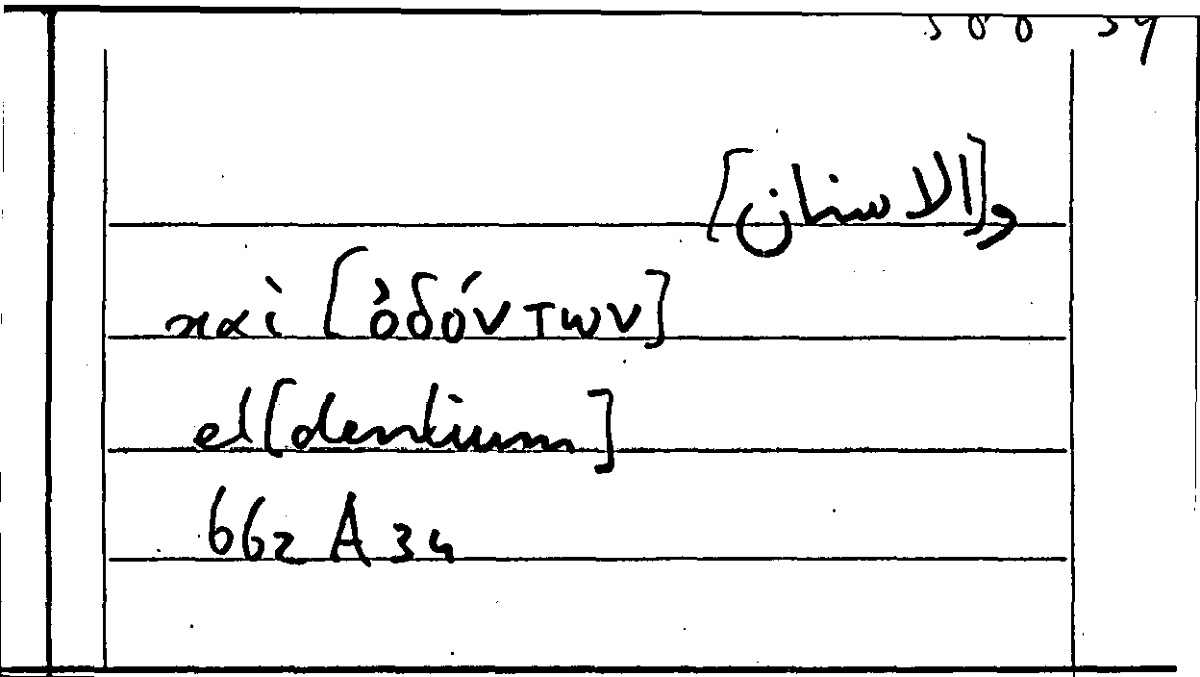 و[الاسنان]
καὶ [ὀδόντων]
et [dentium]
662 A 34